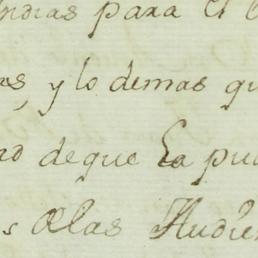 Indias para el
y lo demas qu
de que la pu
las Audie